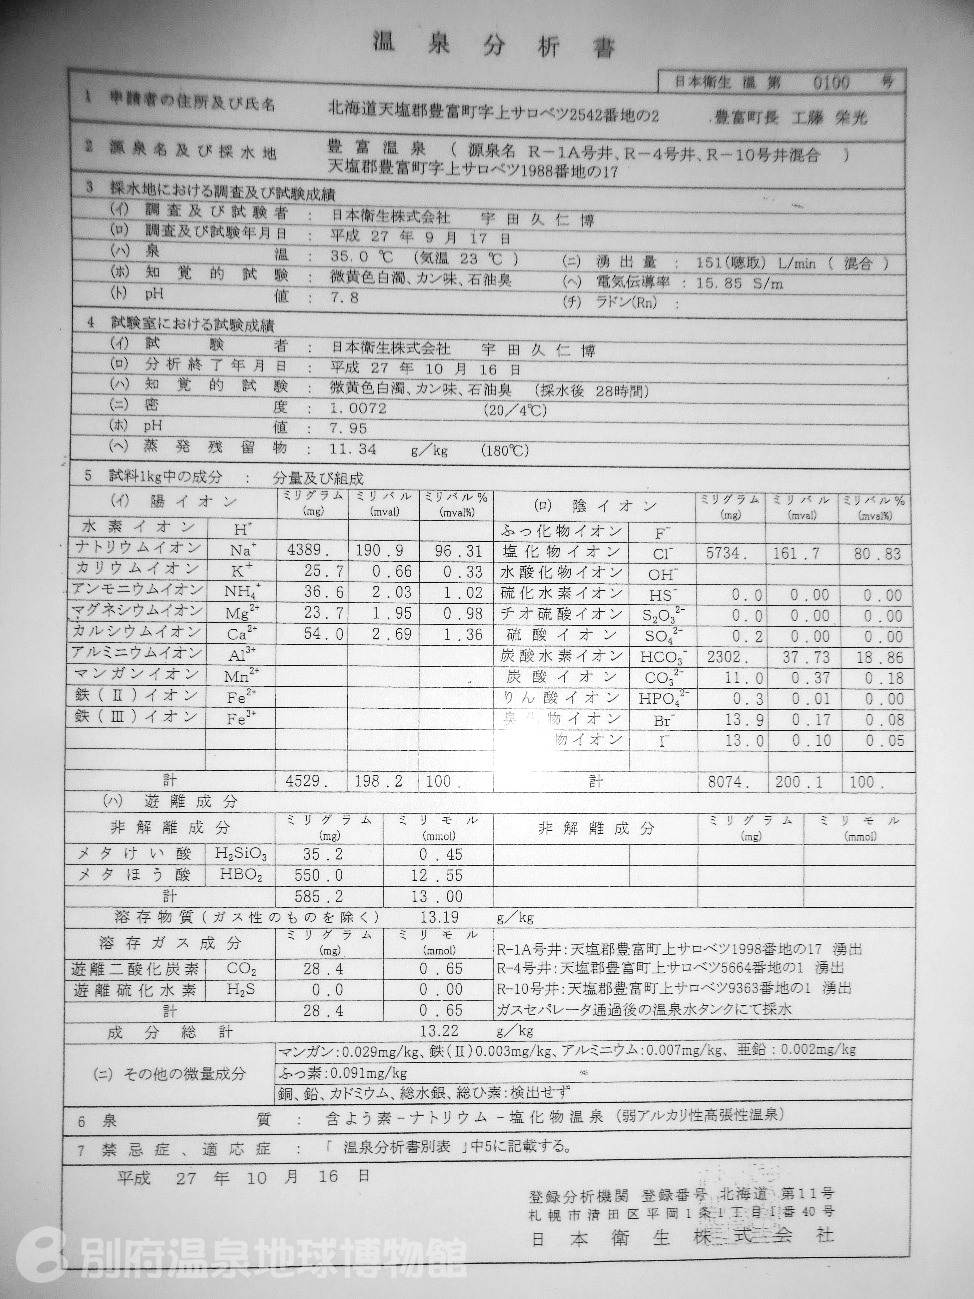 温泉分析書
日本衛生 温 第 0100 号
1 申請者の住所及び氏名 北海道天塩郡豊富町字上サロベツ2542番地の2 豊富町長 工藤 栄光
2 源泉名及び採水地 豊富温泉 ( 源泉名 R-1A号井、R-4号井、R-10号井混合 )
天塩郡豊富町字上サロベツ1988番地の17
3 採水地における調査及び試験成績
(イ) 調査及び試験者 : 日本衛生株式会社 宇田久仁博
(ロ) 調査及び試験年月日 : 平成 27 年 9 月 17 日
(ハ) 泉温 : 35.0 ℃ (気温 23 ℃ ) (ニ) 湧出量 : 151(聴取) L/min ( 混合 )
(ホ) 知覚的試験 : 微黄色白濁、カン味、石油臭 (ヘ) 電気伝導率 : 15.85 S/m
(ト) pH 値 : 7.8 (チ) ラドン(Rn) :
4 試験室における試験成績
(イ) 試験者 : 日本衛生株式会社 宇田久仁博
(ロ) 分析終了年月日 : 平成 27 年 10 月 16 日
(ハ) 知覚的試験 : 微黄色白濁、カン味、石油臭 (採水後 28時間)
(ニ) 密度 : 1.0072 (20/4℃)
(ホ) pH 値 : 7.95
(ヘ) 蒸発残留物 : 11.34 g/kg (180℃)
5 試料1kg中の成分 : 分量及び組成
(イ) 陽イオン ミリグラム(mg) ミリバル(mval) ミリバル%(mval%) (ロ) 陰イオン ミリグラム(mg) ミリバル(mval) ミリバル%(mval%)
水素イオン H⁺ ふっ化物イオン F⁻
ナトリウムイオン Na⁺ 4389. 190.9 96.31 塩化物イオン Cl⁻ 5734. 161.7 80.83
カリウムイオン K⁺ 25.7 0.66 0.33 水酸化物イオン OH⁻
アンモニウムイオン NH₄⁺ 36.6 2.03 1.02 硫化水素イオン HS⁻ 0.0 0.00 0.00
マグネシウムイオン Mg²⁺ 23.7 1.95 0.98 チオ硫酸イオン S₂O₃²⁻ 0.0 0.00 0.00
カルシウムイオン Ca²⁺ 54.0 2.69 1.36 硫酸イオン SO₄²⁻ 0.2 0.00 0.00
アルミニウムイオン Al³⁺ 炭酸水素イオン HCO₃⁻ 2302. 37.73 18.86
マンガンイオン Mn²⁺ 炭酸イオン CO₃²⁻ 11.0 0.37 0.18
鉄(Ⅱ)イオン Fe²⁺ りん酸イオン HPO₄²⁻ 0.3 0.01 0.00
鉄(Ⅲ)イオン Fe³⁺ 臭 物イオン Br⁻ 13.9 0.17 0.08
物イオン I⁻ 13.0 0.10 0.05
計 4529. 198.2 100. 計 8074. 200.1 100.
(ハ) 遊離成分
非解離成分 ミリグラム(mg) ミリモル(mmol) 非解離成分 ミリグラム(mg) ミリモル(mmol)
メタけい酸 H₂SiO₃ 35.2 0.45
メタほう酸 HBO₂ 550.0 12.55
計 585.2 13.00
溶存物質(ガス性のものを除く) 13.19 g/kg
溶存ガス成分 ミリグラム(mg) ミリモル(mmol) R-1A号井:天塩郡豊富町上サロベツ1998番地の17 湧出
遊離二酸化炭素 CO₂ 28.4 0.65 R-4号井:天塩郡豊富町上サロベツ5664番地の1 湧出
遊離硫化水素 H₂S 0.0 0.00 R-10号井:天塩郡豊富町上サロベツ9363番地の1 湧出
計 28.4 0.65 ガスセパレータ通過後の温泉水タンクにて採水
成分総計 13.22 g/kg
(ニ) その他の微量成分 マンガン:0.029mg/kg、鉄(Ⅱ)0.003mg/kg、アルミニウム:0.007mg/kg、亜鉛:0.002mg/kg
ふっ素:0.091mg/kg
銅、鉛、カドミウム、総水銀、総ひ素:検出せず
6 泉質 : 含よう素-ナトリウム-塩化物温泉 (弱アルカリ性高張性温泉)
7 禁忌症、適応症 : 「温泉分析書別表」中5に記載する。
平成 27 年 10 月 16 日
登録分析機関 登録番号 北海道 第11号
札幌市清田区平岡1条1丁目1番40号
日本衛生株式会社
別府温泉地球博物館